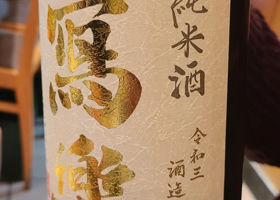 純米酒
令和三
酒造
寫樂